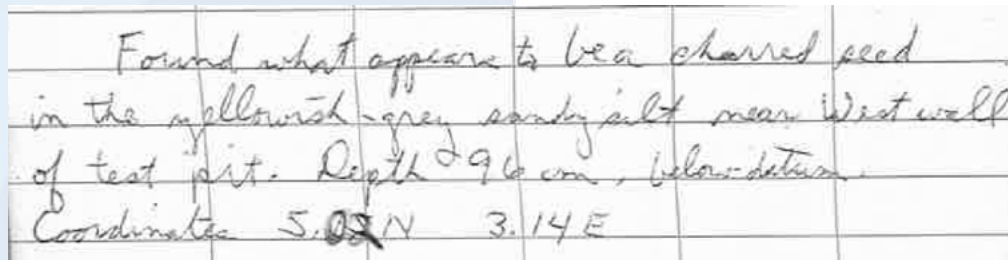 Found what appears to be a charred seed
in the yellowish-grey sandy silt near West wall
of test pit. Depth 296 cm, below-datum.
Coordinates 5. N 3.14 E